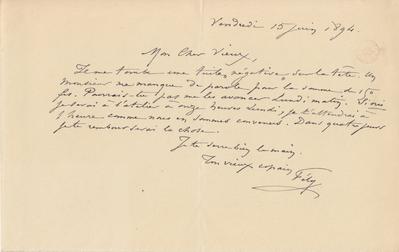 Vendredi 15 juin 1894.
Mon Cher Vieux,
Il me tombe une tuile "négative" sur la tête. Un
Monsieur me manque de parole pour la somme de 150
frs. Pourrais-tu pas me les avancer Lundi matin. Si oui
je serai à l'atelier à onze heures Lundi, je t'attendrai à
l'heure comme nous en sommes convenus. Dans quatre jours
je te rembourserai la chose.
Je te serre bien la main.
Ton vieux copain